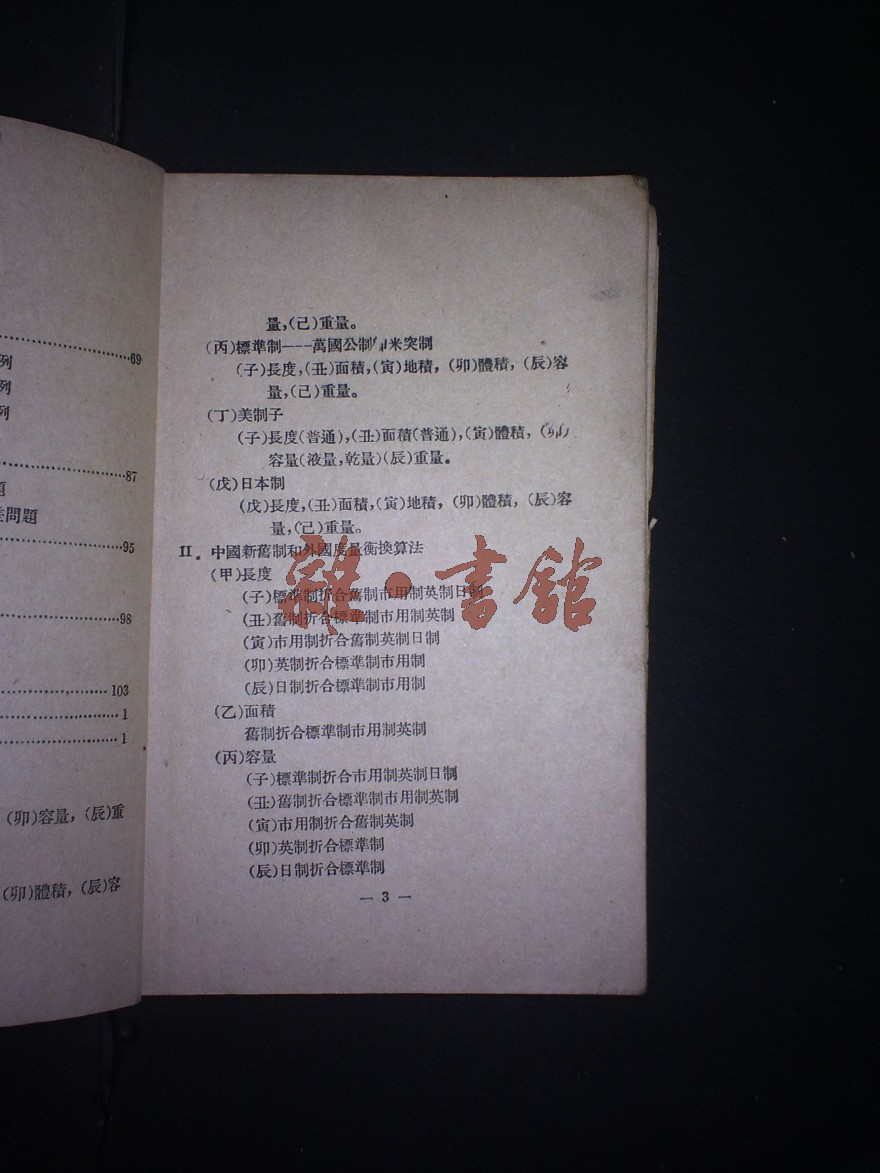 69
例
例
例
87
題
問題
95
98
103
1
1
(卯)容量,(辰)重
(卯)體積,(辰)容
量,(己)重量。
(丙)標準制———萬國公制 米突制
(子)長度,(丑)面積,(寅)地積,(卯)體積,(辰)容
量,(己)重量。
(丁)美制子
(子)長度(普通),(丑)面積(普通),(寅)體積,
容量(液量,乾量)(辰)重量。
(戊)日本制
(戊)長度,(丑)面積,(寅)地積,(卯)體積,(辰)容
量,(己)重量。
II. 中國新舊制和外國度量衡換算法
(甲)長度
(子)標準制折合舊制市用制英制日制
(丑)舊制折合標準制市用制英制
(寅)市用制折合舊制英制日制
(卯)英制折合標準制市用制
(辰)日制折合標準制市用制
(乙)面積
舊制折合標準制市用制英制
(丙)容量
(子)標準制折合市用制英制日制
(丑)舊制折合標準制市用制英制
(寅)市用制折合舊制英制
(卯)英制折合標準制
(辰)日制折合標準制
— 3 —
雜·書館